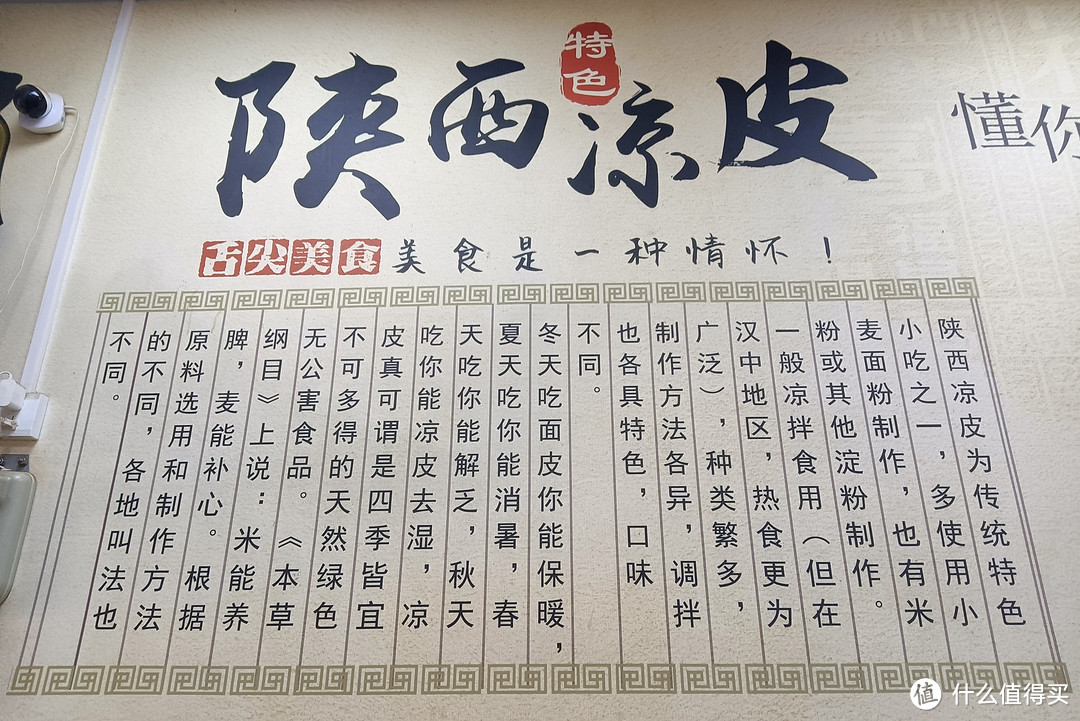 特色
陕西凉皮
懂你
舌尖美食美食是一种情怀！
陕西凉皮为传统特色
小吃之一，多使用小
麦面粉制作，也有米
粉或其他淀粉制作。
一般凉拌食用（但在
汉中地区，热食更为
广泛），种类繁多，
制作方法各异，调拌
也各具特色，口味
不同。
冬天吃面皮你能保暖，
夏天吃你能消暑，春
天吃你能解乏，秋天
吃你能凉皮去湿，凉
皮真可谓是四季皆宜
不可多得的天然绿色
无公害食品。《本草
纲目》上说：米能养
脾，麦能补心。根据
原料选用和制作方法
的不同，各地叫法也
不同。
值 什么值得买